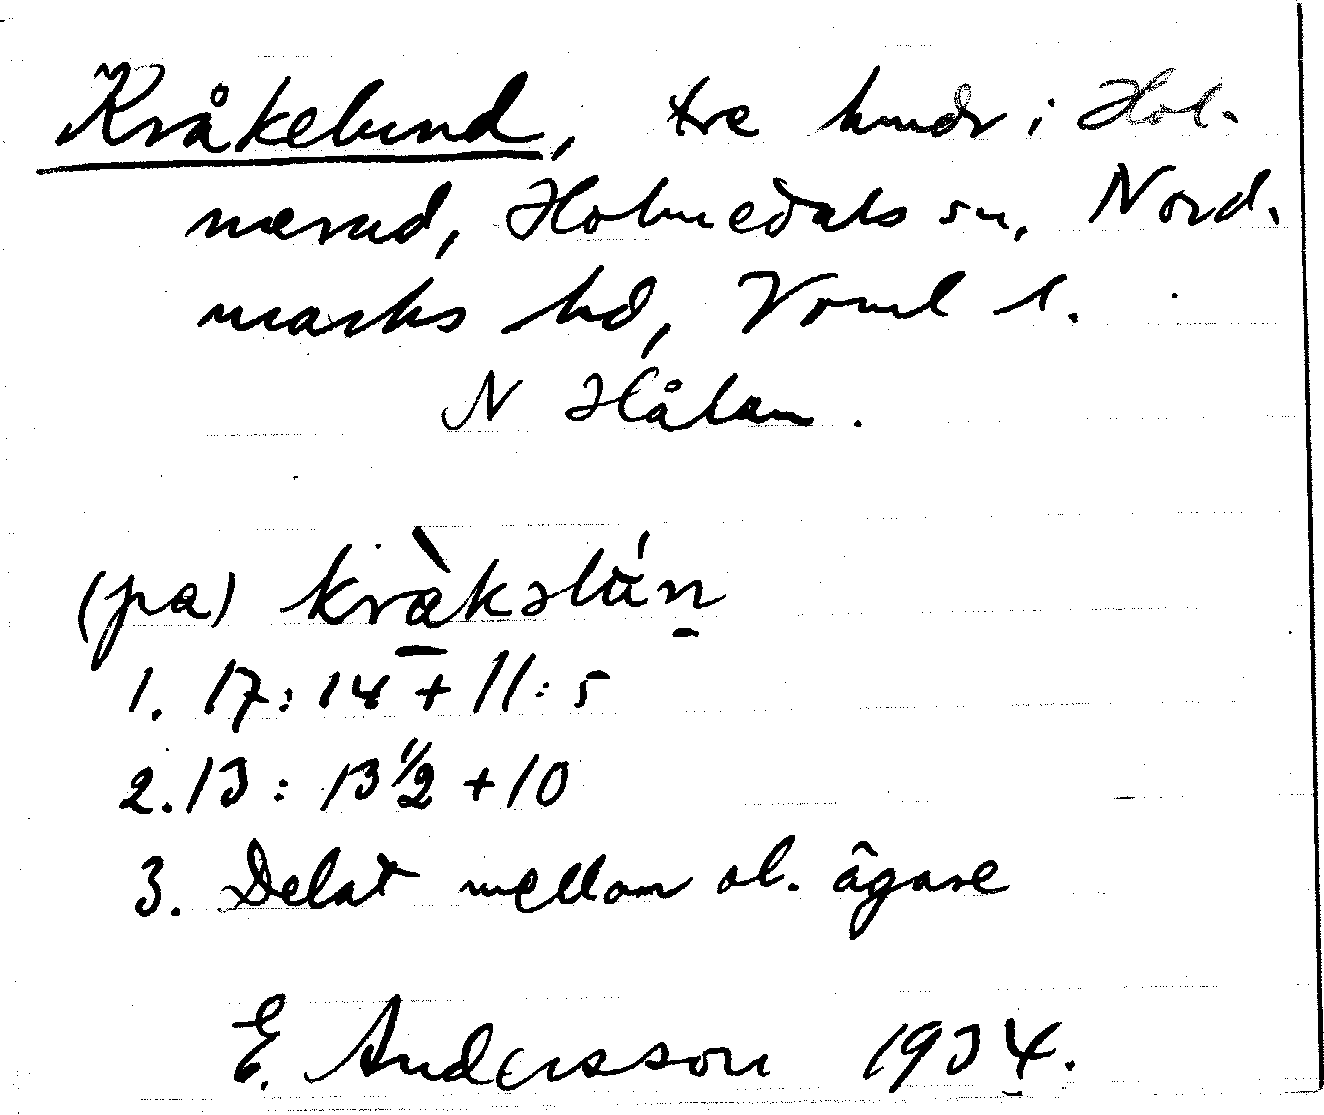 Kråkelund, tre hmdr i Hol-
nærud, Holmedals sn, Nord-
marks hd, Vrml l.
N Hålan.
(pa) kràkəlún
1. 17:14 + 11:5
2. 13 : 13 1/2 + 10
3. Delat mellan ol. ägare
E. Andersson 1934.